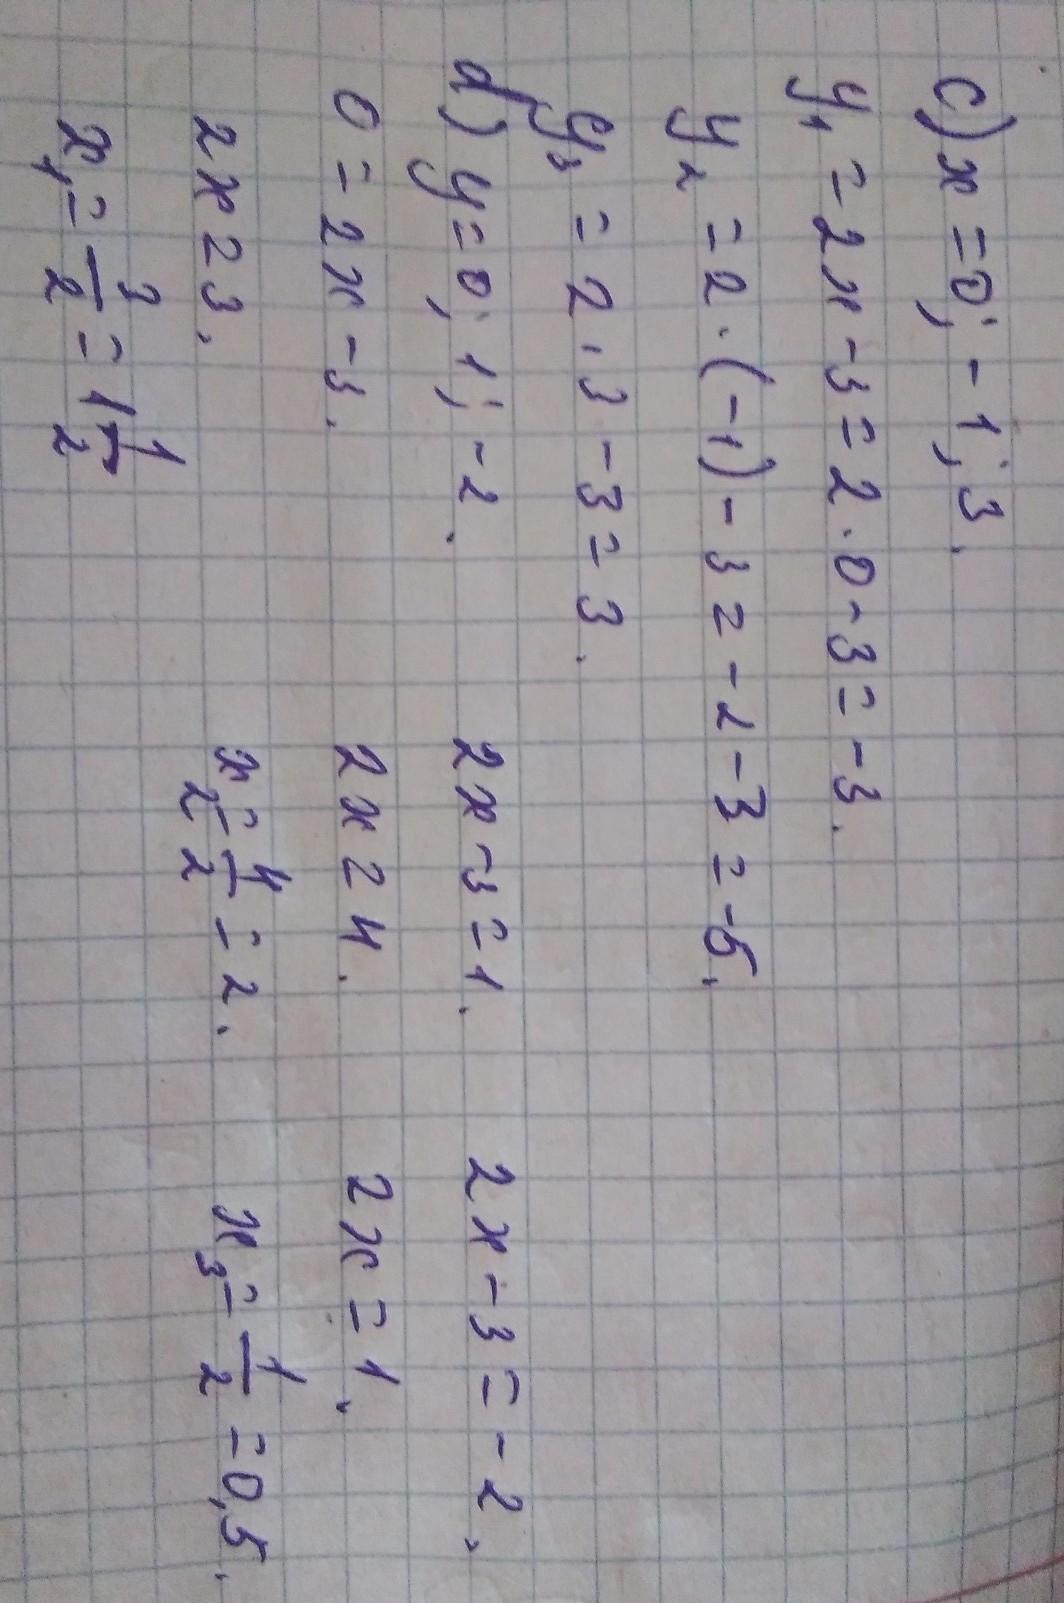 c) x = 0; -1; 3.
y₁ = 2x - 3 = 2 · 0 - 3 = -3.
y₂ = 2 · (-1) - 3 = -2 - 3 = -5.
y₃ = 2 · 3 - 3 = 3.
d) y = 0; 1; -2.
0 = 2x - 3.
2x = 3.
x₁ = 3/2 = 1 1/2
2x - 3 = 1.
2x = 4.
x₂ = 4/2 = 2.
2x - 3 = -2.
2x = 1.
x₃ = 1/2 = 0,5.